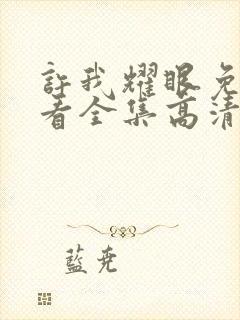 許我耀眼免
看全集高清
藍堯